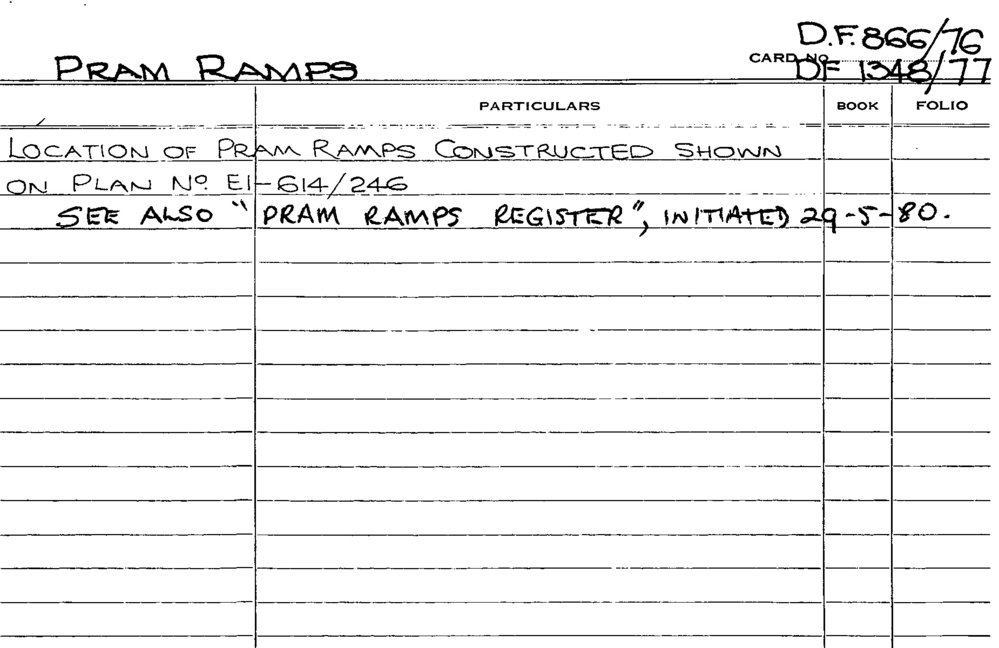 D.F. 866/76
PRAM RAMPS
CARD NO. DF 1348/77
PARTICULARS BOOK FOLIO
LOCATION OF PRAM RAMPS CONSTRUCTED SHOWN
ON PLAN Nº E1-614/246
SEE ALSO "PRAM RAMPS REGISTER", INITIATED 29-5-80.